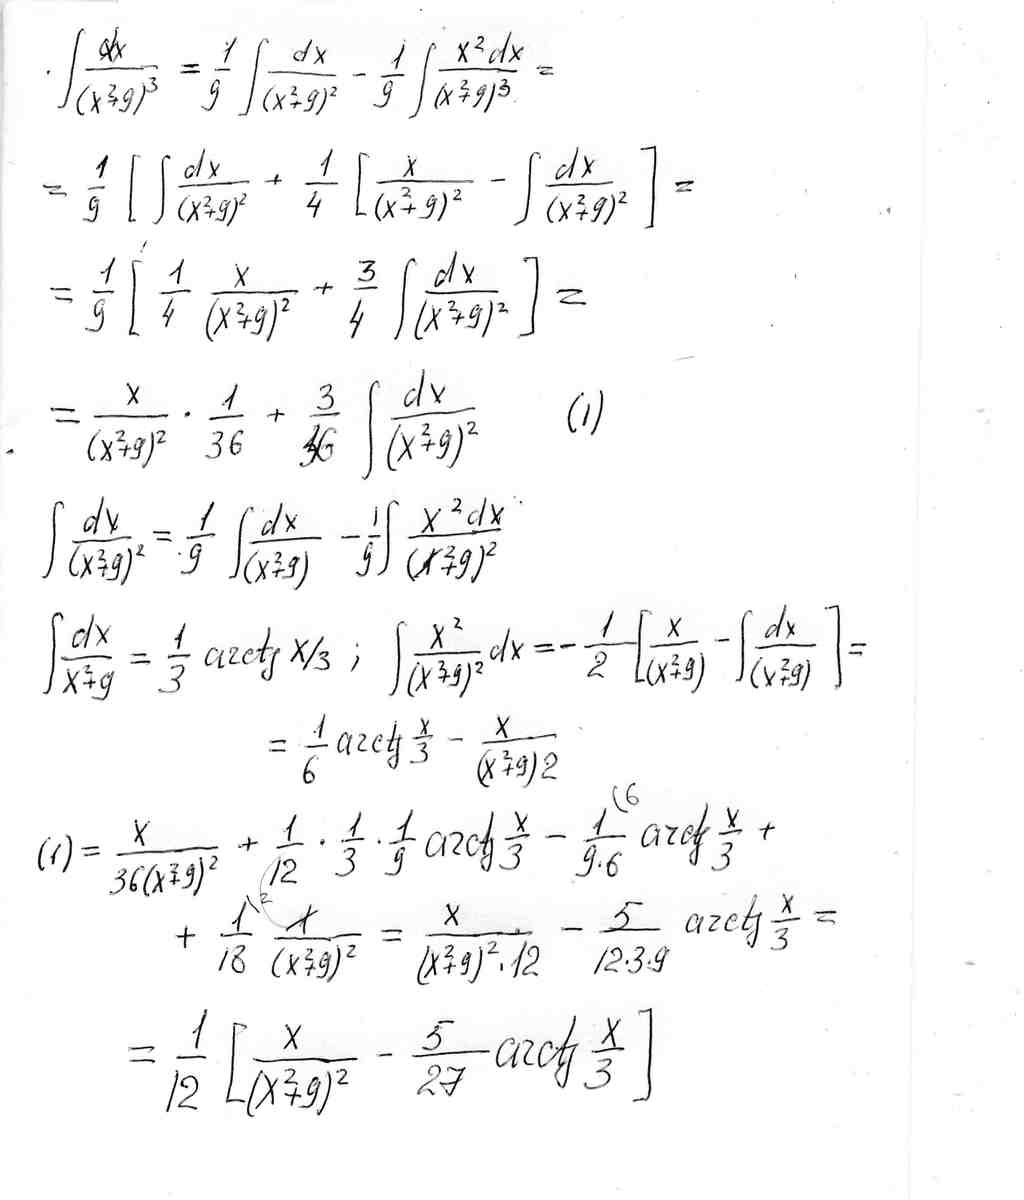 ∫ dx/(x²+9)³ = 1/9 ∫ dx/(x²+9)² - 1/9 ∫ x²dx/(x²+9)³ =
= 1/9 [ ∫ dx/(x²+9)² + 1/4 [ x/(x²+9)² - ∫ dx/(x²+9)² ] =
= 1/9 [ 1/4 x/(x²+9)² + 3/4 ∫ dx/(x²+9)² ] =
= x/(x²+9)² · 1/36 + 3/36 ∫ dx/(x²+9)² (1)
∫ dx/(x²+9)² = 1/9 ∫ dx/(x²+9) - 1/9 ∫ x²dx/(x²+9)²
∫ dx/x²+9 = 1/3 arctg x/3 ; ∫ x²/(x²+9)² dx = - 1/2 [ x/(x²+9) - ∫ dx/(x²+9) ] =
= 1/6 arctg x/3 - x/(x²+9)2
(1) = x/36(x²+9)² + 1/12 · 1/3 · 1/9 arctg x/3 - 1/9·6 (6 arctg x/3 +
+ 1/18 \2 x/(x²+9)² = x/(x²+9)²·12 - 5/12·3·9 arctg x/3 =
= 1/12 [ x/(x²+9)² - 5/27 arctg x/3 ]